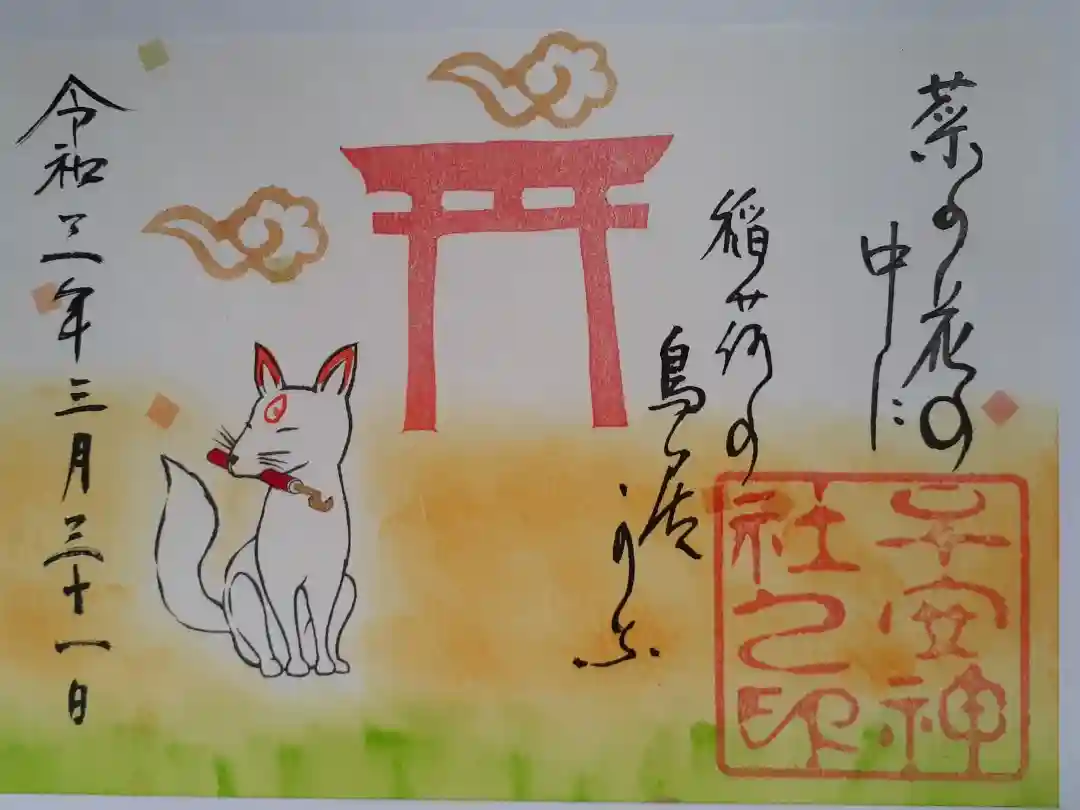 菜の花の
中に
稲荷の
鳥居かな
子安神
社之印
令和三年三月三十一日